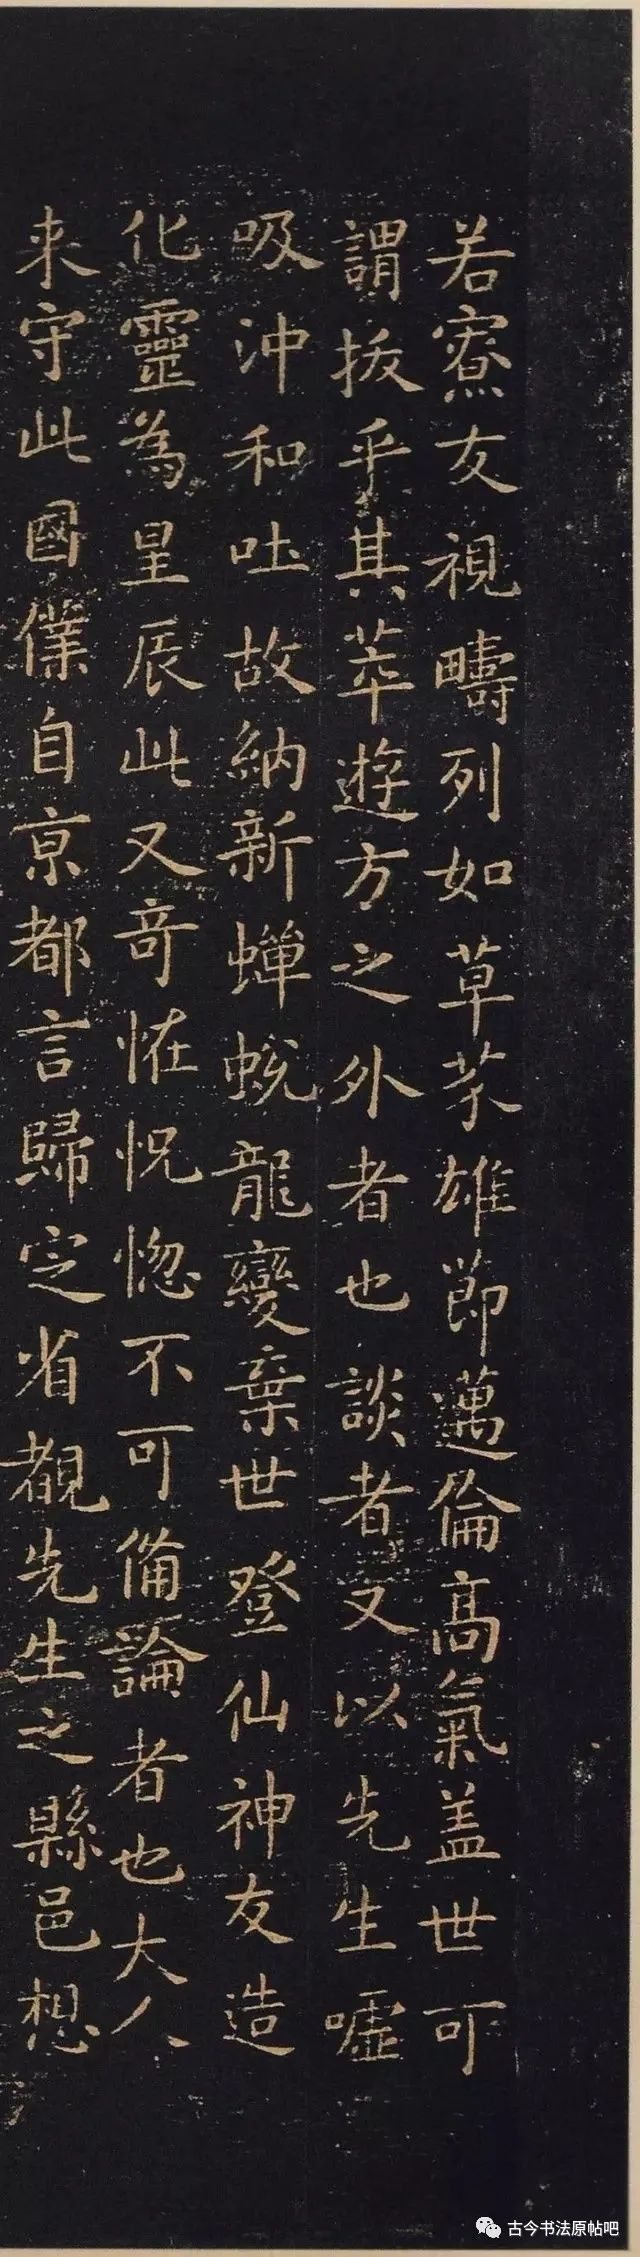 若寮友視疇列如草芥雄節邁倫高氣盖世可
謂拔乎其萃遊方之外者也談者又以先生噓
吸沖和吐故納新蟬蛻龍變棄世登仙神友造
化靈為星辰此又奇怪怳惚不可備論者也大人
来守此國僕自京都言歸定省覩先生之縣邑想
古今书法原帖吧